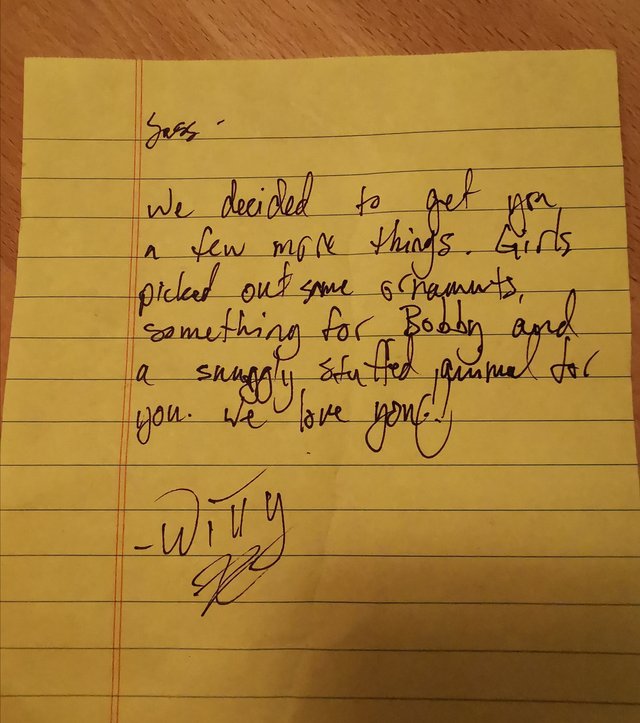 Sass -
We decided to get you
a few more things. Girls
picked out some ornaments,
something for Bobby and
a snuggly stuffed animal for
you. We love you!
- Witty